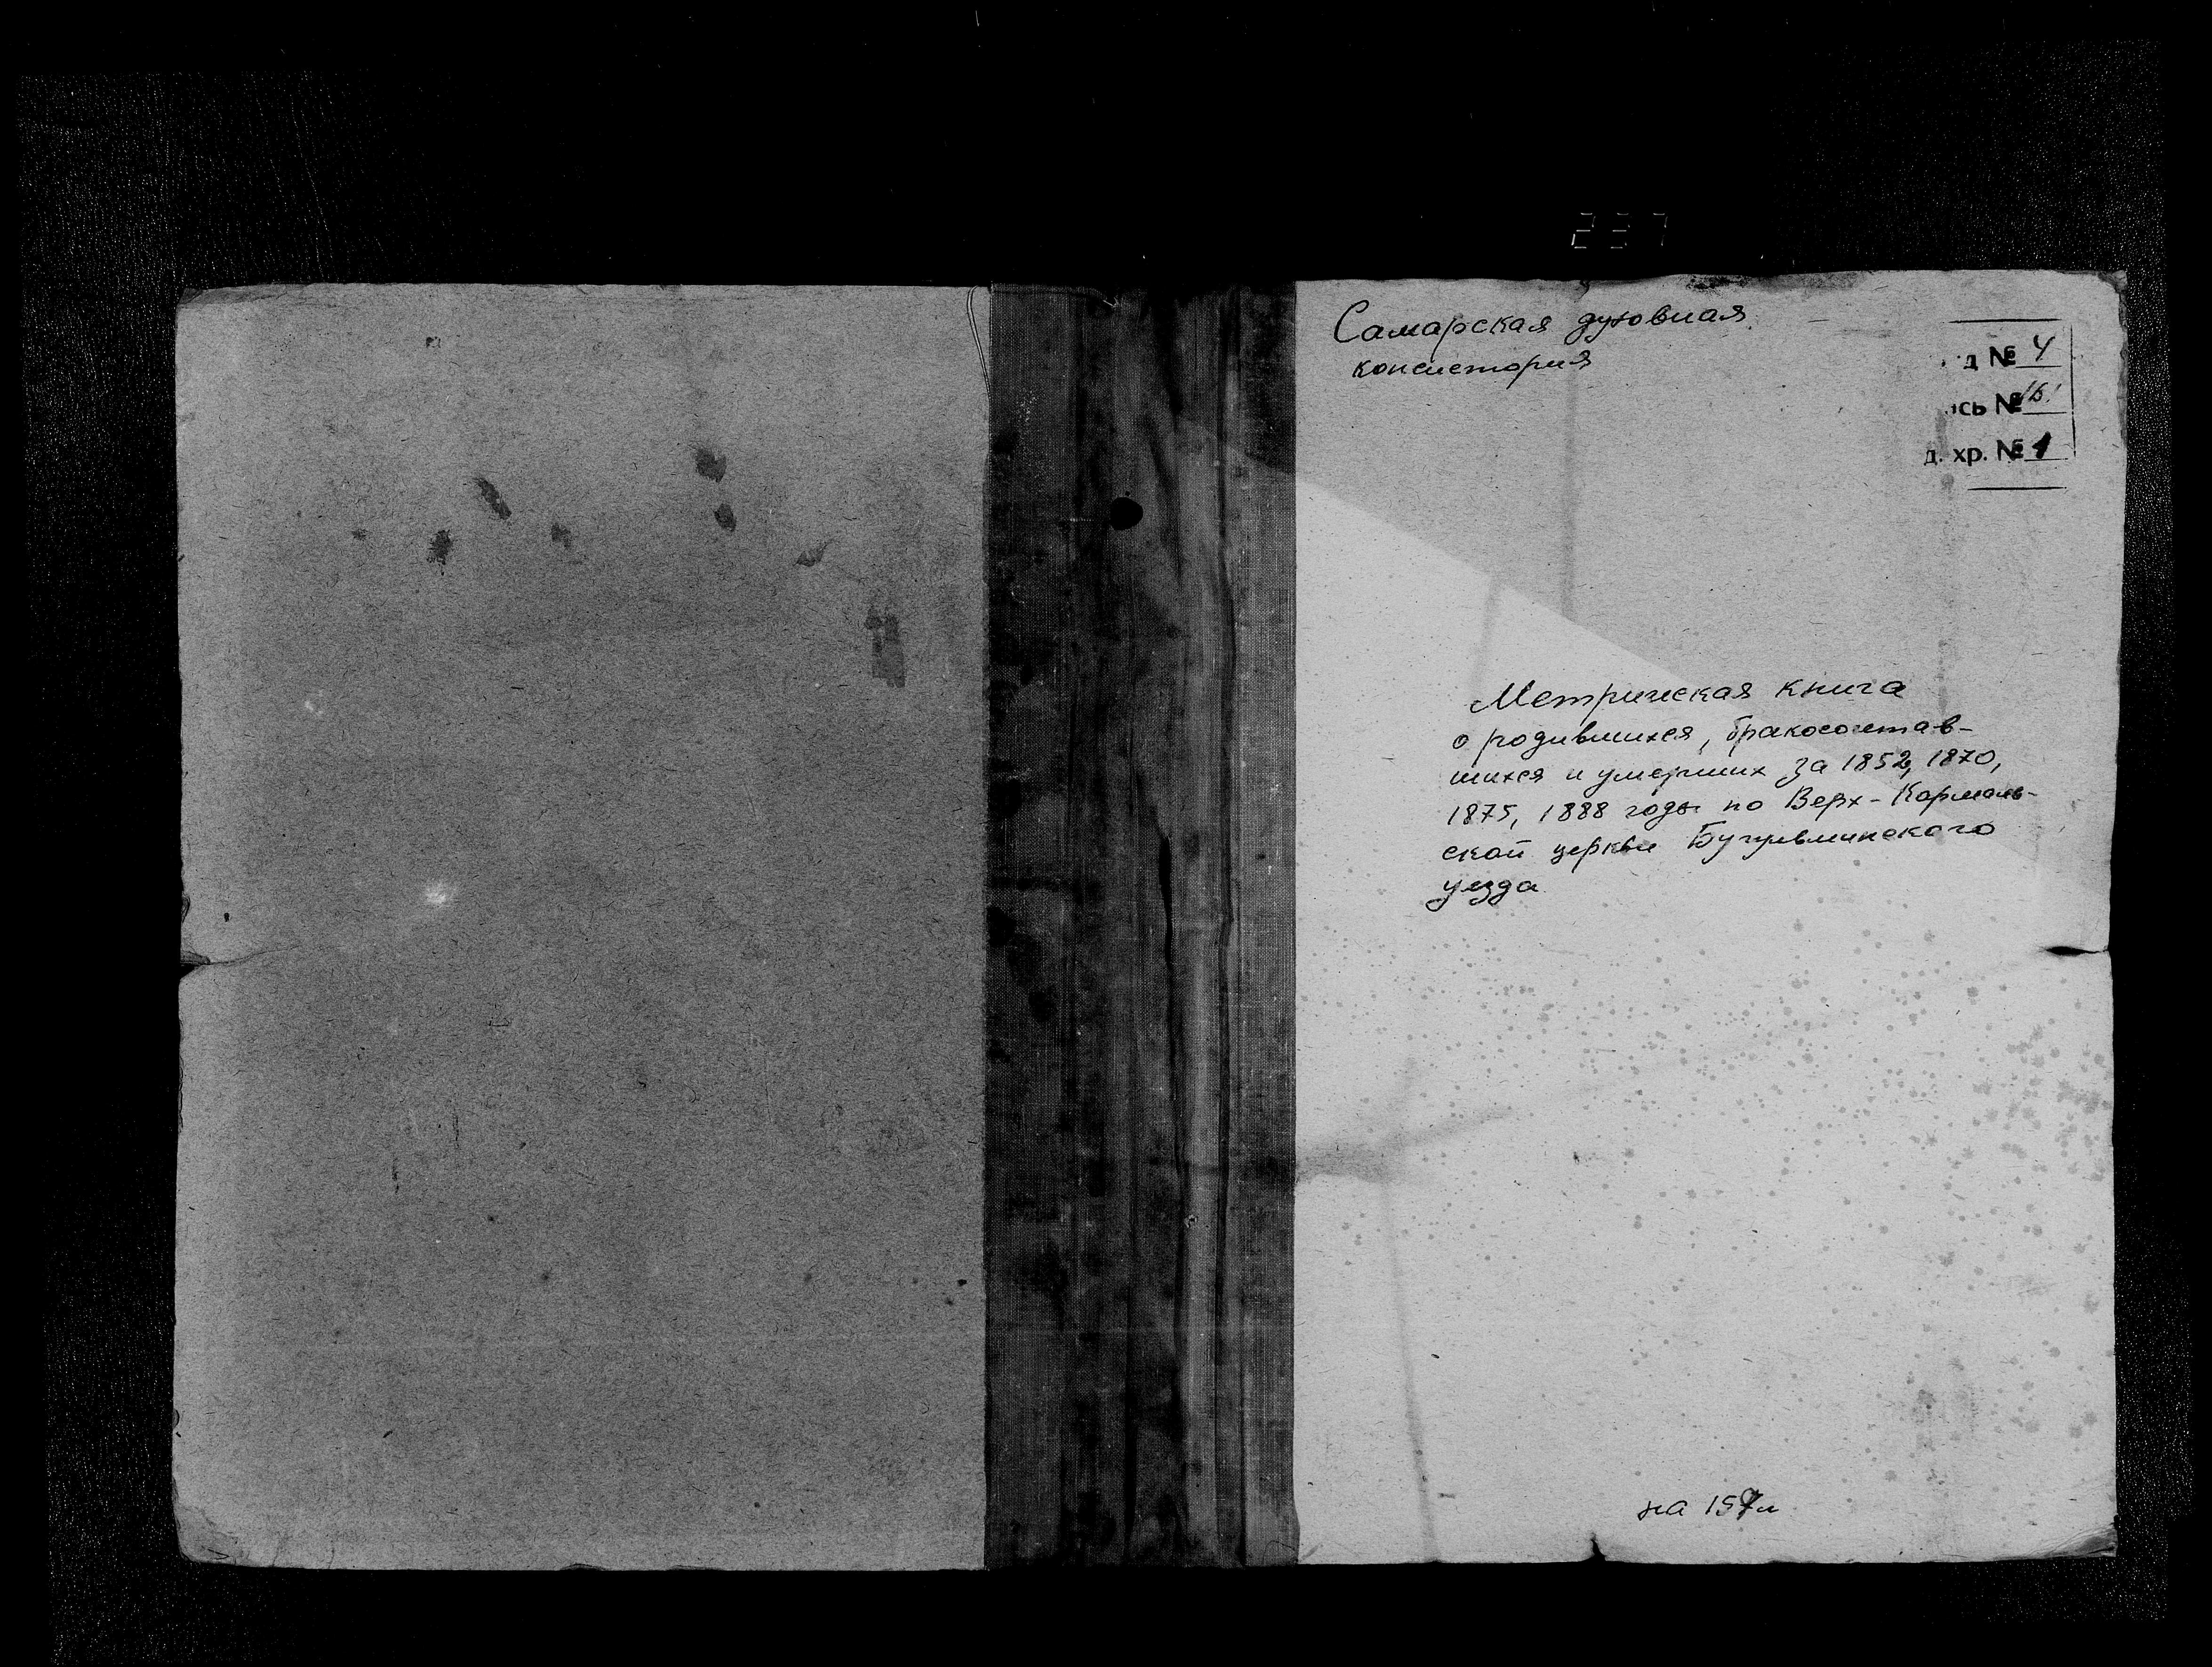 237
Самарская духовная
консистория
д № 4
ись №
д. хр. № 1
Метрическая книга
о родившихся, бракосочетав-
шихся и умерших за 1852, 1870,
1875, 1888 годы по Верх-Кармаль-
ской церкви Бугульминского
уезда
на 157 л